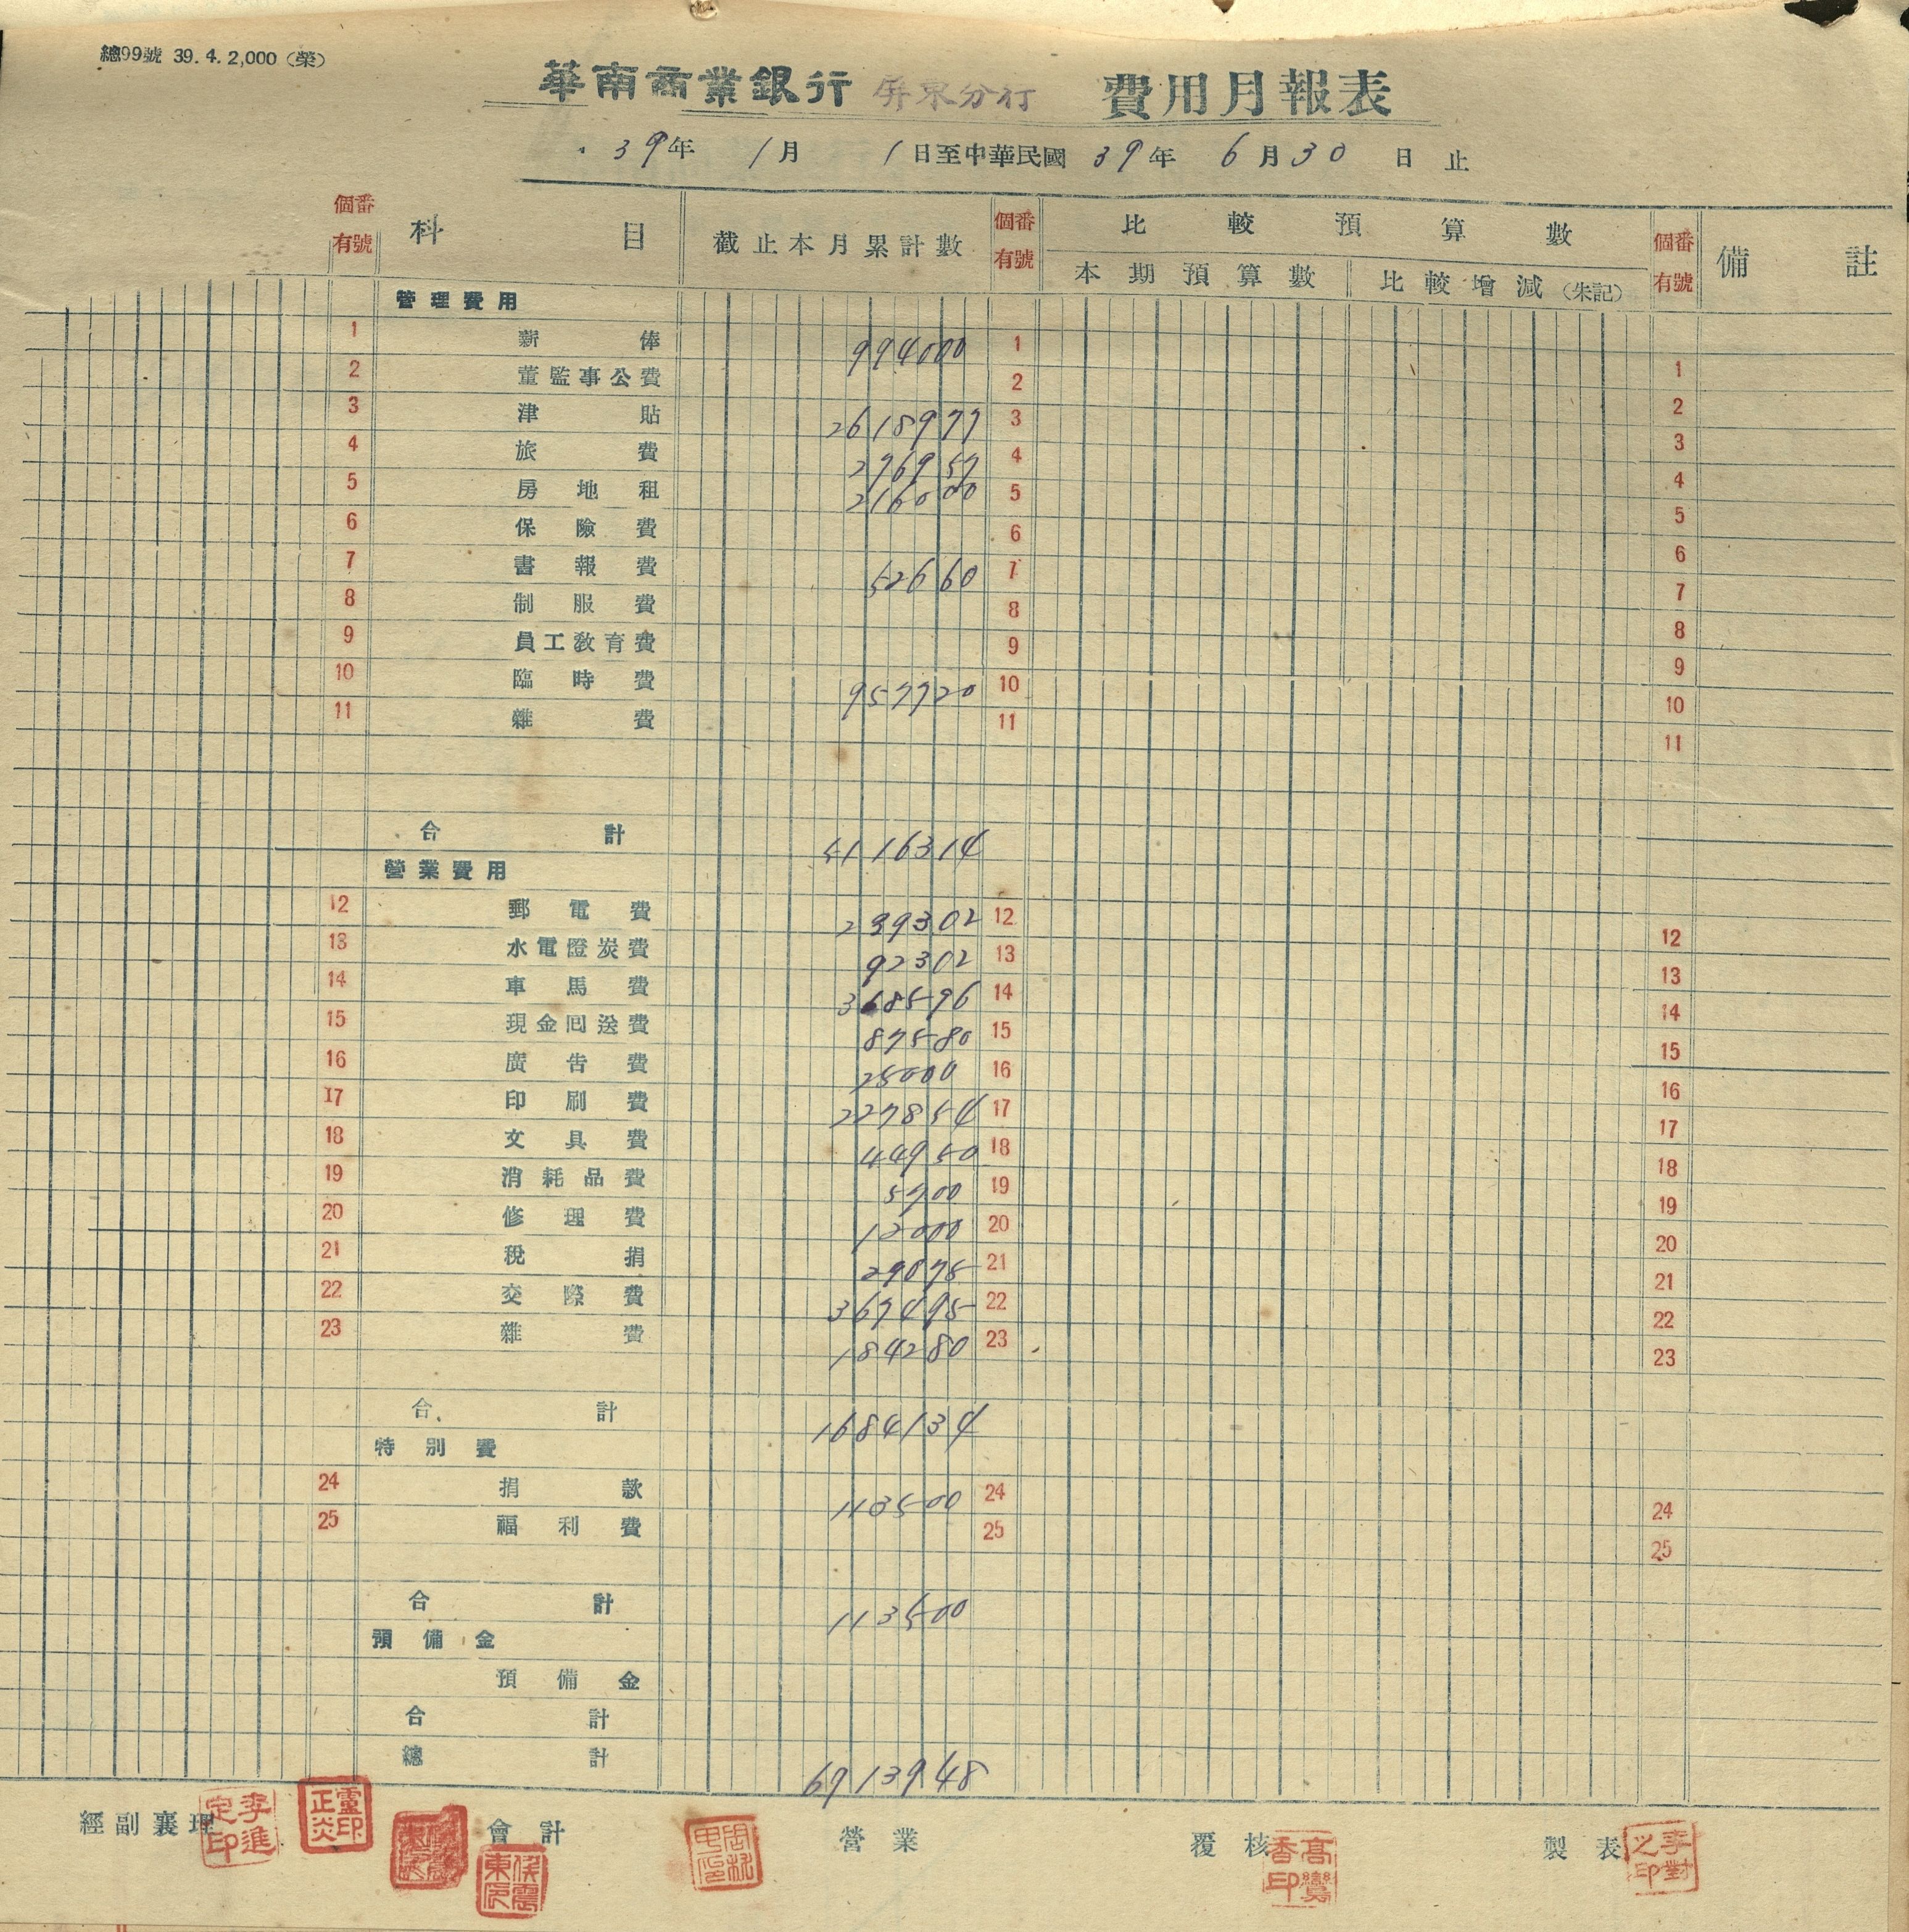 總99號 39. 4. 2,000 (榮)
華南商業銀行 屏東分行 費用月報表
39年 1月 1日至中華民國 39年 6月30日止
個有番號 科目 截止本月累計數 個有番號 比較預算數 個有番號 備註
本期預算數 比較增減(朱記)
管理費用
1 薪俸 994000 1 1
2 董監事公費 2 2
3 津貼 2618977 3 3
4 旅費 276957 4 4
5 房地租 216000 5 5
6 保險費 6 6
7 書報費 52660 7 7
8 制服費 8 8
9 員工教育費 9 9
10 臨時費 957720 10 10
11 雜費 11 11
合計 5116314
營業費用
12 郵電費 239302 12 12
13 水電燈炭費 92302 13 13
14 車馬費 368596 14 14
15 現金回送費 87580 15 15
16 廣告費 25000 16 16
17 印刷費 227854 17 17
18 文具費 44950 18 18
19 消耗品費 5700 19 19
20 修理費 12000 20 20
21 稅捐 29075 21 21
22 交際費 367495 22 22
23 雜費 184280 23 23
合計 1684134
特別費
24 捐款 113500 24 24
25 福利費 25 25
合計 113500
預備金
預備金
合計
總計 6913948
經副襄理 李進定印 盧正炎印 會計 侯震東印 營業 覆核 高鸞香印 製表 李對之印